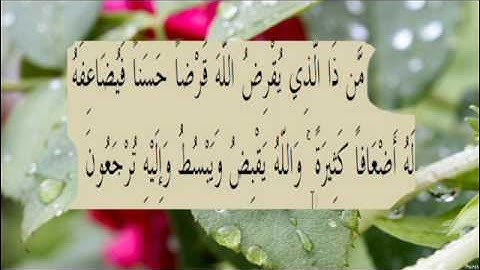 مَّن ذَا الَّذِي يُقْرِضُ اللَّهَ قَرْضاً حَسَناً فَيُضَاعِفَهُ
لَهُ أَضْعَافاً كَثِيرَةً ۚ وَاللَّهُ يَقْبِضُ وَيَبْسُطُ وَإِلَيْهِ تُرْجَعُونَ